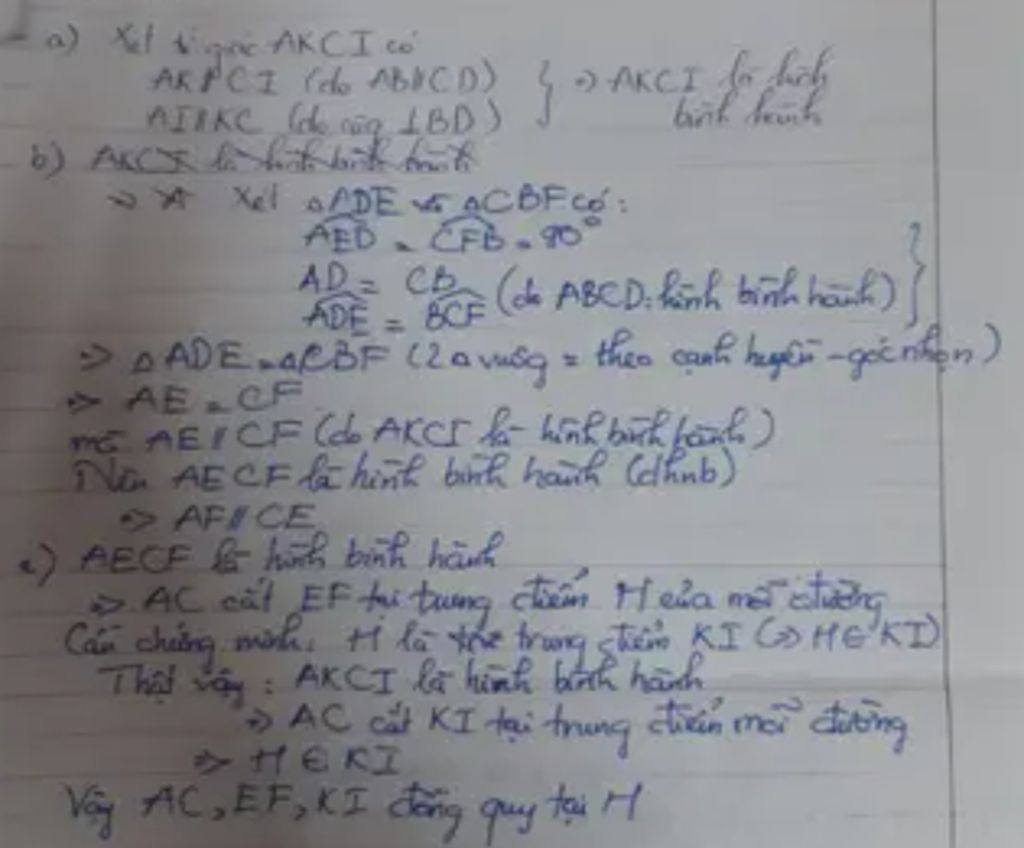 a) Xét tứ giác AKCI có
AK // CI (do AB // CD)
AI // KC (do cùng ⊥ BD) } => AKCI là hình bình hành
b) AKCI là hình bình hành
=> Xét △ADE và △CBF có:
AED = CFB = 90°
AD = CB
ADE = BCF (do ABCD: hình bình hành) }
=> △ADE = △CBF (2△ vuôg = theo cạnh huyền - góc nhọn)
=> AE = CF
mà AE // CF (do AKCI là hình bình hành)
Nên AECF là hình bình hành (dhnb)
=> AF // CE
c) AECF là hình bình hành
=> AC cắt EF tại trung điểm H của mỗi đường
Cần chứng minh: H là trung điểm KI (=> H ∈ KI)
Thật vậy: AKCI là hình bình hành
=> AC cắt KI tại trung điểm mỗi đường
=> H ∈ KI
Vậy AC, EF, KI đồng quy tại H